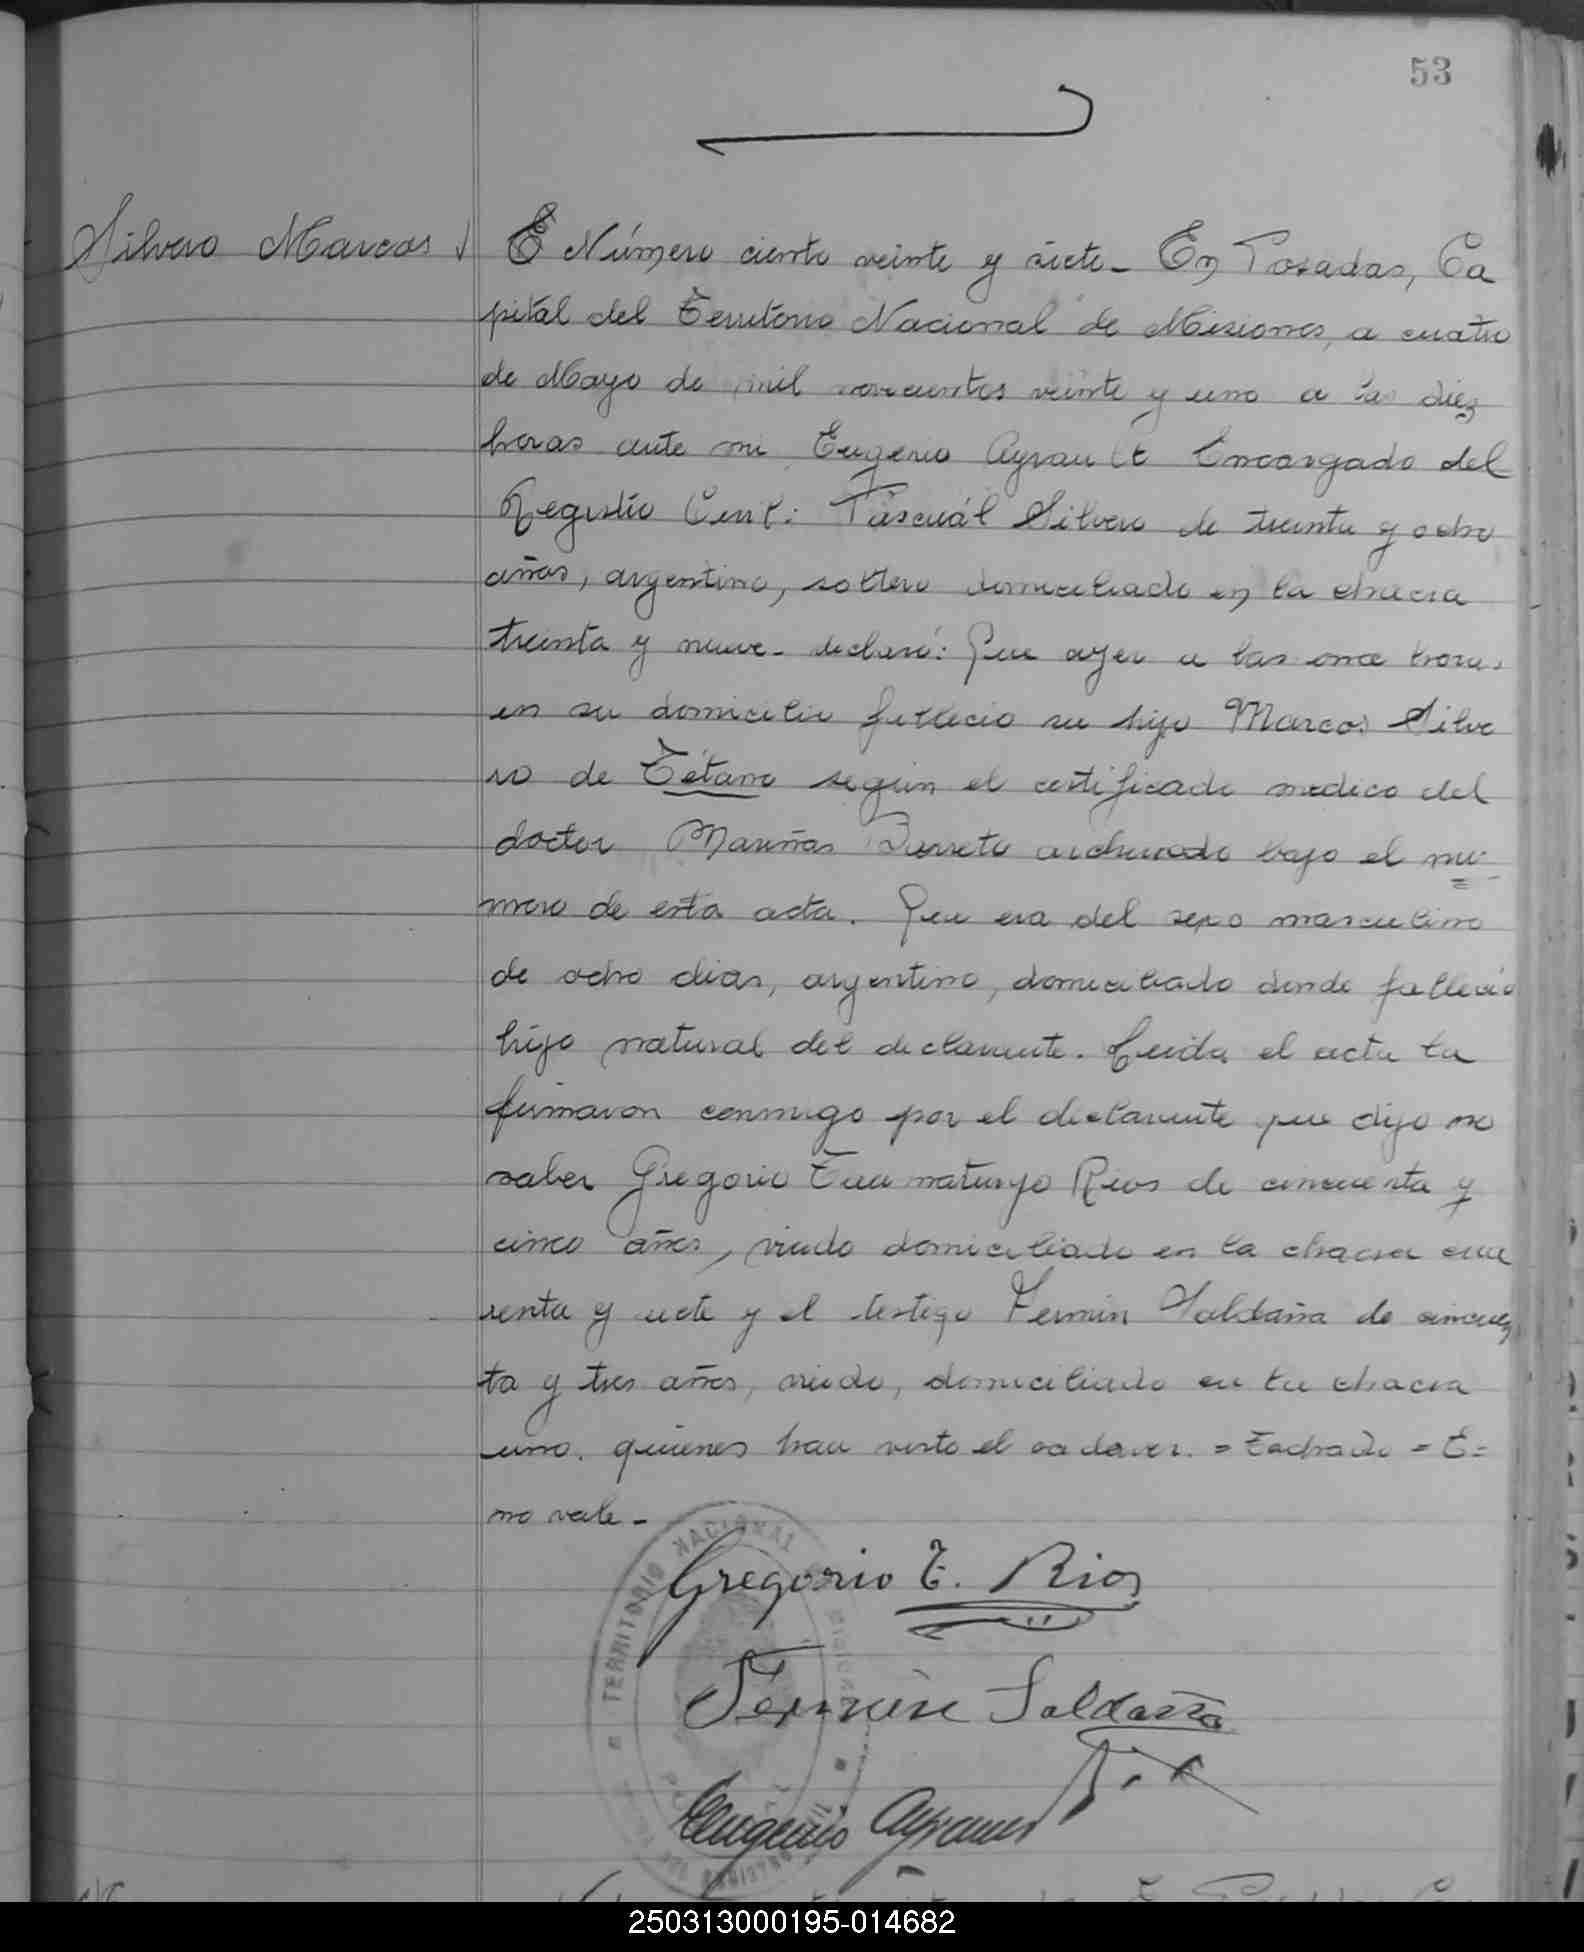 53
Silvero Marcos
E Número ciento veinte y siete- En Posadas, Ca
pital del Territorio Nacional de Misiones, a cuatro
de Mayo de mil novecientos veinte y uno a las diez
horas ante mi Eugenio Ayrault Encargado del
Registro Civil: Pascuál Silvero de treinta y ocho
años, argentino, soltero domiciliado en la chacra
treinta y nueve- declaró: Que ayer a las once horas
en su domicilio falleció su hijo Marcos Silve
ro de Tétano según el certificado medico del
doctor Mariñas Barreto archivado bajo el nú-
mero de esta acta. Que era del sexo masculino
de ocho dias, argentino, domiciliado donde falleció
hijo natural del declarante. Leida el acta la
firmaron conmigo por el declarante que dijo no
saber Gregorio Rios de cincuenta y
cinco años, viudo domiciliado en la chacra cua
renta y siete y el testigo Fermin Saldaña de cincuen
ta y tres años, viudo, domiciliado en la chacra
uno. quienes han visto el cadaver. = Tachado = E=
no vale-
Gregorio T. Rios
Fermin Saldaña
Eugenio Ayrault
TERRITORIO NACIONAL
250313000195-014682